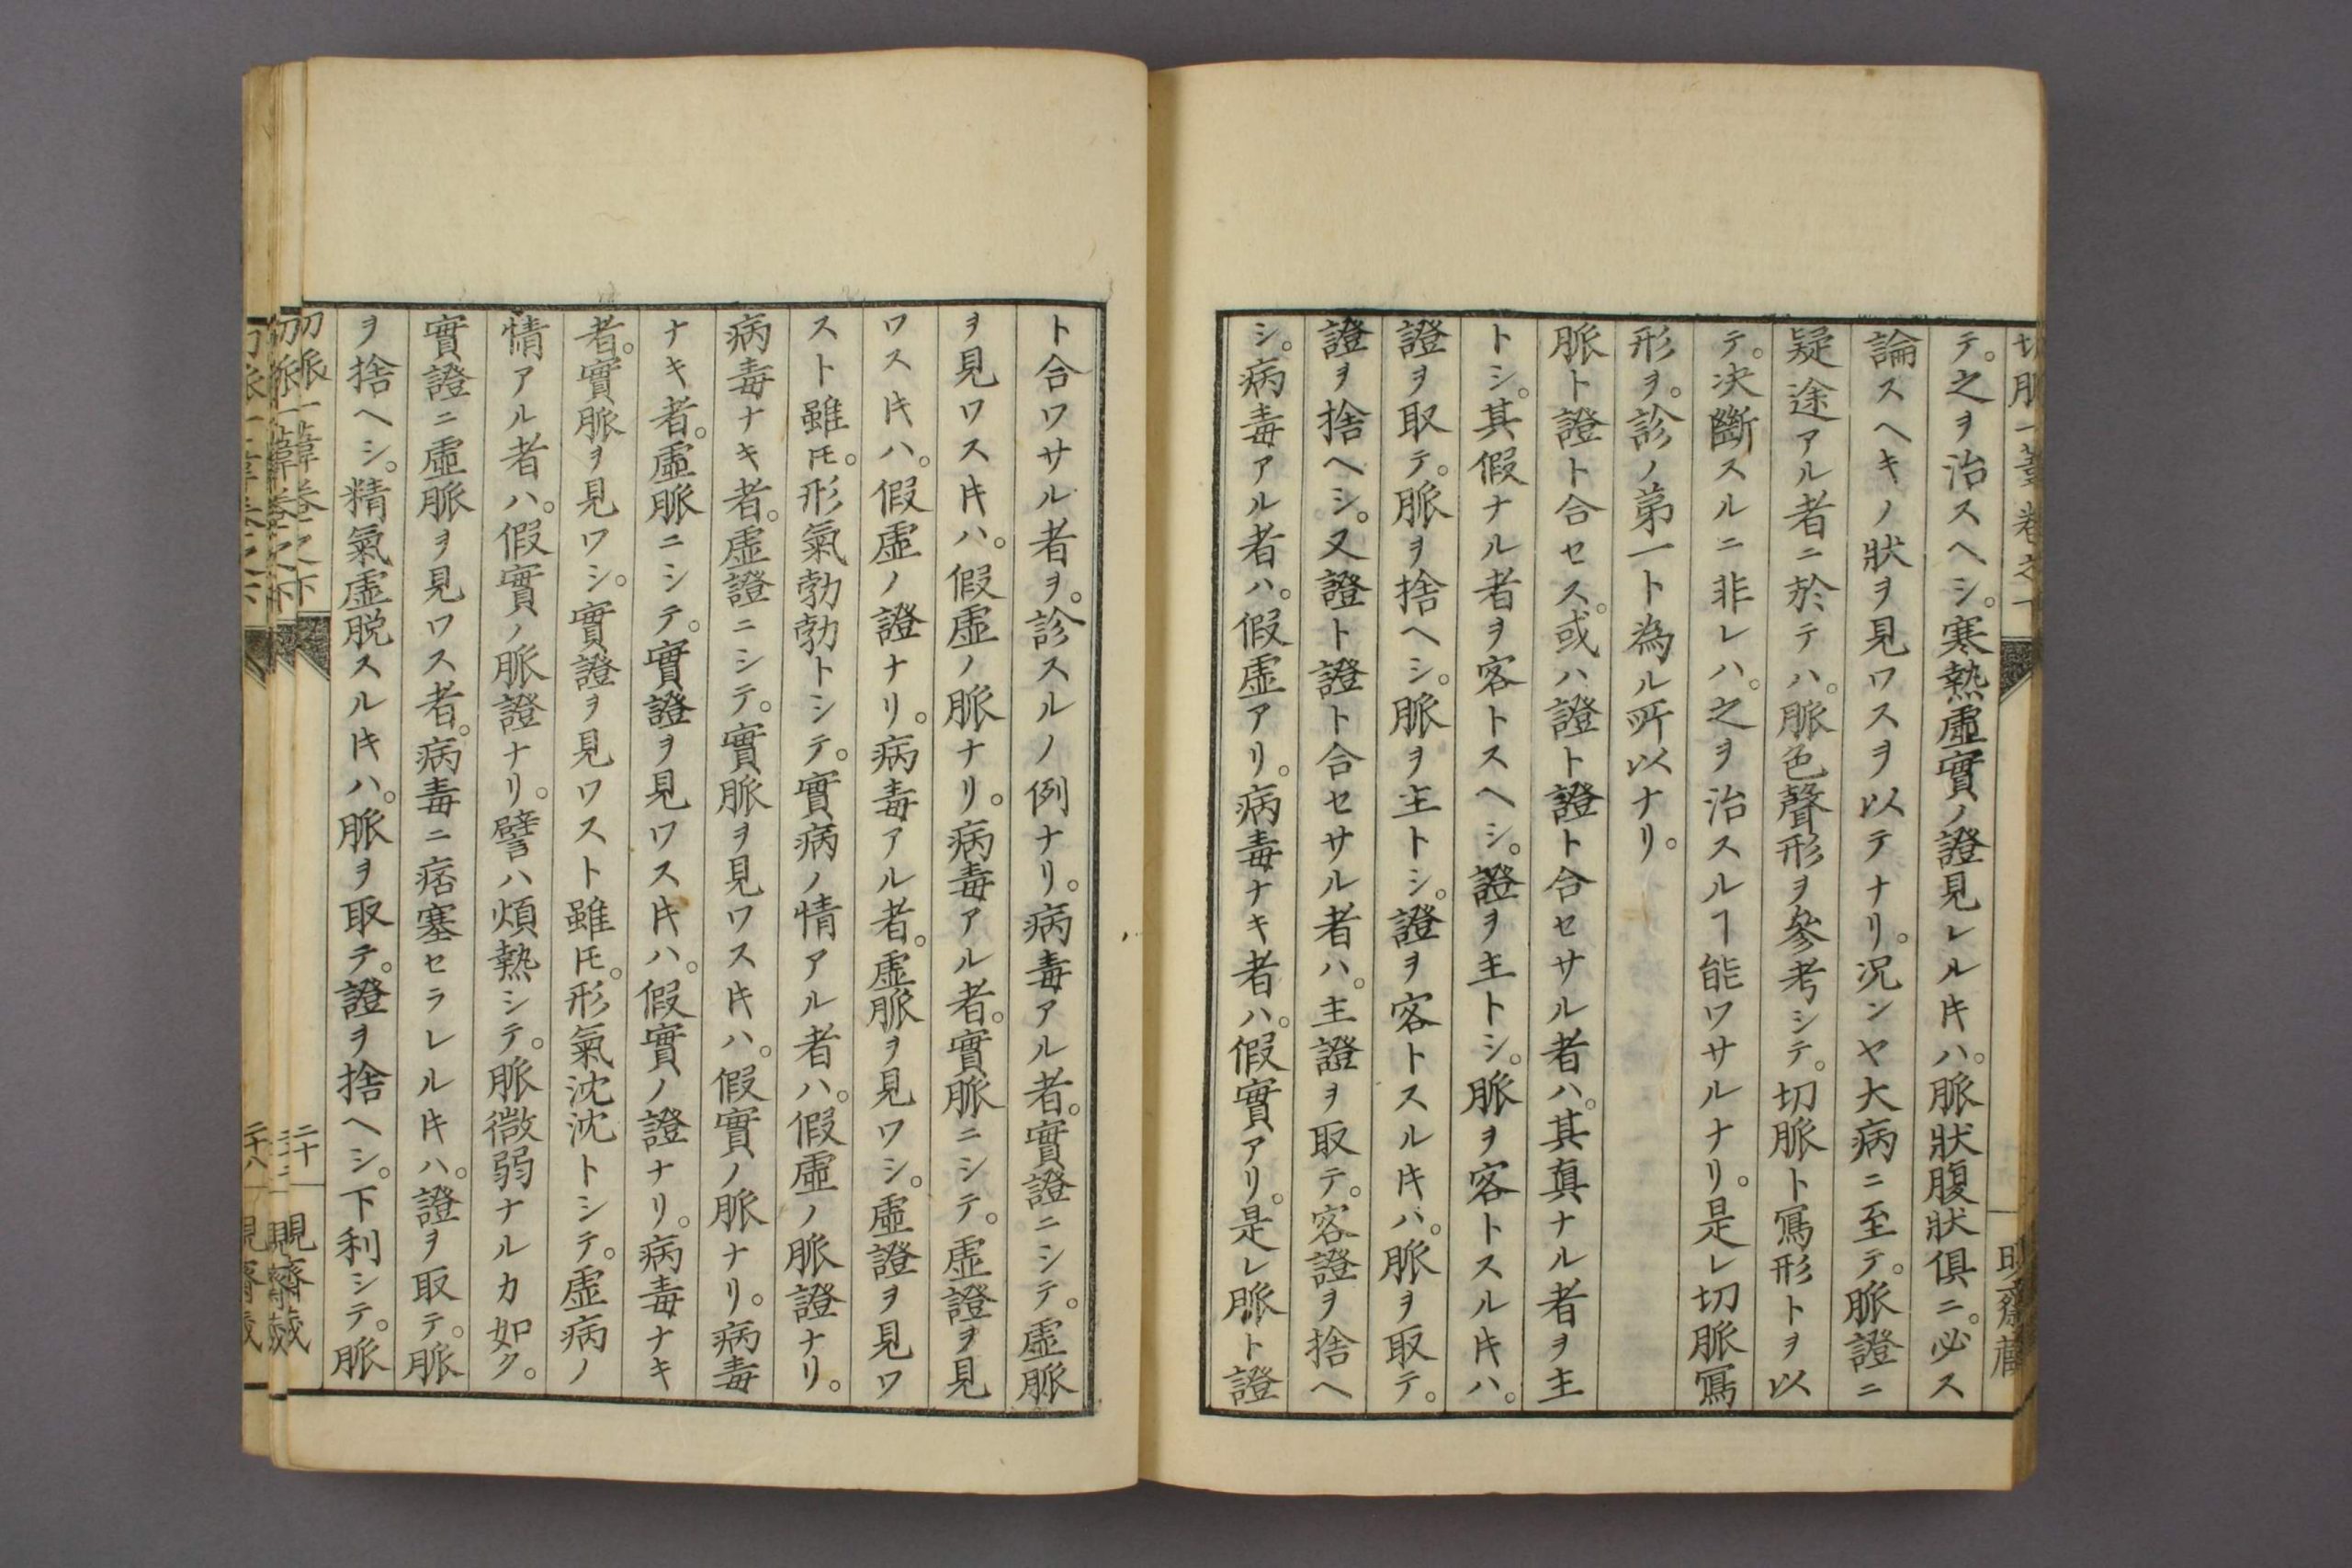 テ。之ヲ治スヘシ。寒熱虛實ノ證見レル𪜈ハ。脈狀腹狀俱ニ。必ス
論スヘキノ狀ヲ見ワスヲ以テナリ。况ンヤ大病ニ至テ。脈證ニ
疑途アル者ニ於テハ。脈色聲形ヲ參考シテ。切脈ト寫形トヲ以
テ。決斷スルニ非レハ。之ヲ治スルヿ能ワサルナリ。是レ切脈寫
形ヲ。診ノ第一ト為ル所以ナリ。
脈ト證ト合セス。或ハ證ト證ト合セサル者ハ。其真ナル者ヲ主
トシ。其假ナル者ヲ客トスヘシ。證ヲ主トシ。脈ヲ客トスル𪜈ハ。
證ヲ取テ。脈ヲ捨ヘシ。脈ヲ主トシ。證ヲ客トスル𪜈ハ。脈ヲ取テ。
證ヲ捨ヘシ。又證ト證ト合セサル者ハ。主證ヲ取テ。客證ヲ捨ヘ
シ。病毒アル者ハ。假虛アリ。病毒ナキ者ハ。假實アリ。是レ脈ト證
ト合ワサル者ヲ。診スルノ例ナリ。病毒アル者。實證ニシテ。虛脈
ヲ見ワス𪜈ハ。假虛ノ脈ナリ。病毒アル者。實脈ニシテ。虛證ヲ見
ワス𪜈ハ。假虛ノ證ナリ。病毒アル者。虛脈ヲ見ワシ。虛證ヲ見ワ
スト雖𪜈。形氣勃勃トシテ。實病ノ情アル者ハ。假虛ノ脈證ナリ。
病毒ナキ者。虛證ニシテ。實脈ヲ見ワス𪜈ハ。假實ノ脈ナリ。病毒
ナキ者。虛脈ニシテ。實證ヲ見ワス𪜈ハ。假實ノ證ナリ。病毒ナキ
者。實脈ヲ見ワシ。實證ヲ見ワスト雖𪜈。形氣沈沈トシテ。虛病ノ
情アル者ハ。假實ノ脈證ナリ。譬ハ煩熱シテ。脈微弱ナルカ如ク。
實證ニ虛脈ヲ見ワス者。病毒ニ痞塞セラレル𪜈ハ。證ヲ取テ。脈
ヲ捨ヘシ。精氣虛脱スル𪜈ハ。脈ヲ取テ。證ヲ捨ヘシ。下利シテ。脈